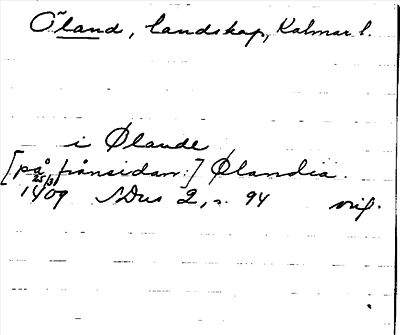 Öland, landskap, Kalmar l.
i Ølande
[på frånsidan:] Ølandia.
25/3 1409 SDns 2, s. 94 orig.